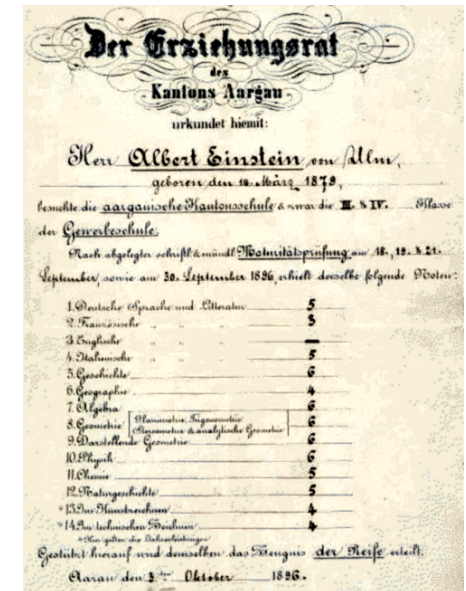 Der Erziehungsrat
des
Kantons Aargau
urkundet hiemit:
Herr Albert Einstein von Ulm,
geboren den 14. März 1879,
besuchte die aargauische Kantonsschule & zwar die III. & IV. Klasse
der Gewerbeschule.
Nach abgelegter schriftl. & mündl. Maturitätsprüfung am 18., 19. & 21.
September, sowie am 30. September 1896, erhielt derselbe folgende Noten:
1. Deutsche Sprache und Litteratur 5
2. Französische " " " 3
3. Englische " " " —
4. Italienische " " " 5
5. Geschichte 6
6. Geographie 4
7. Algebra 6
8. Geometrie (Planimetrie, Trigonometrie 6
Stereometrie & analytische Geometrie)
9. Darstellende Geometrie 6
10. Physik 6
11. Chemie 5
12. Naturgeschichte 5
*13. Im Kunstzeichnen 4
*14. Im technischen Zeichnen 4
*Hier gelten die Jahresleistungen
Gestützt hierauf wird demselben das Zeugnis der Reife erteilt.
Aarau den 3ten Oktober 1896.